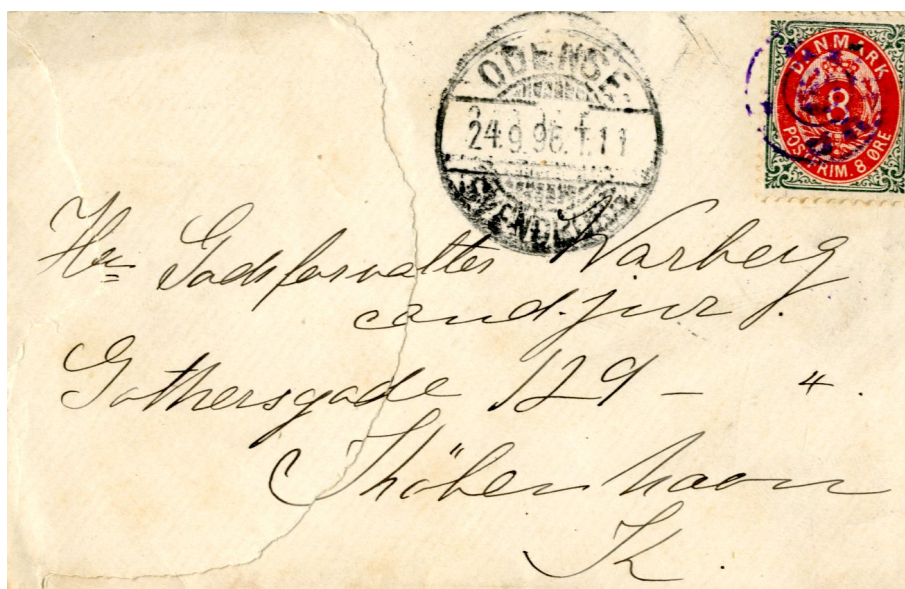 ODENSE
24.9.96.
SVENDBORG
DANMARK
8
POSTFRIM. 8 ØRE
Hr Godsforvalter Warberg
cand. jur.
Gothersgade 129 - 4.
Khöbenhavn
K.